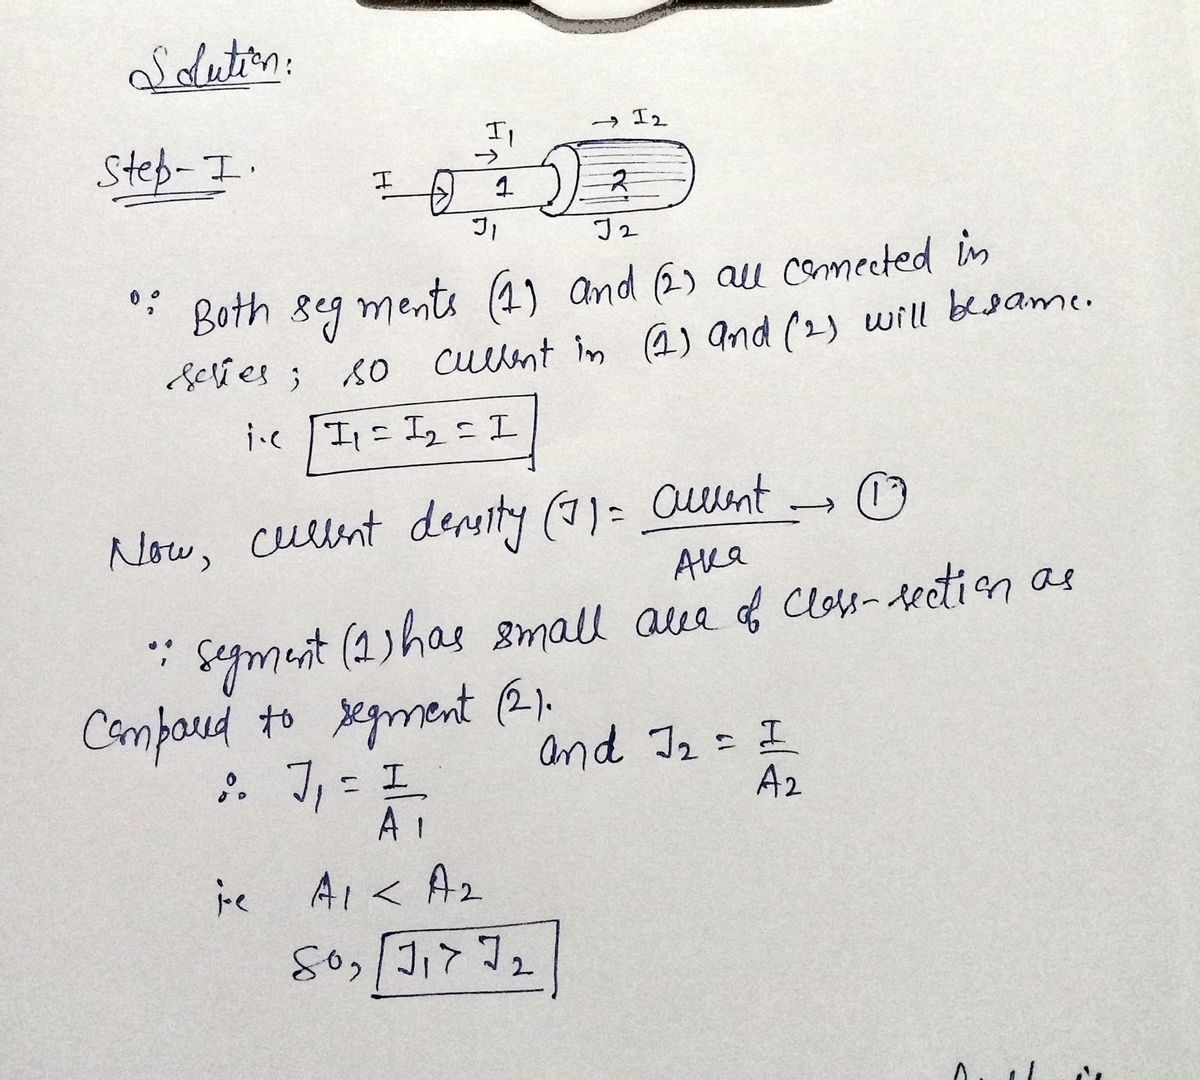 Solution:
Step-I.
I1 → I2
→
I 1 2
J1 J2
∵ Both segments (1) and (2) are connected in
series ; so current in (1) and (2) will be same.
i.e I1 = I2 = I
Now, current density (J) = Current → ①
Area
∵ segment (1) has small area of cross-section as
Compared to segment (2).
∴ J1 = I/A1 and J2 = I/A2
i.e A1 < A2
so, J1 > J2